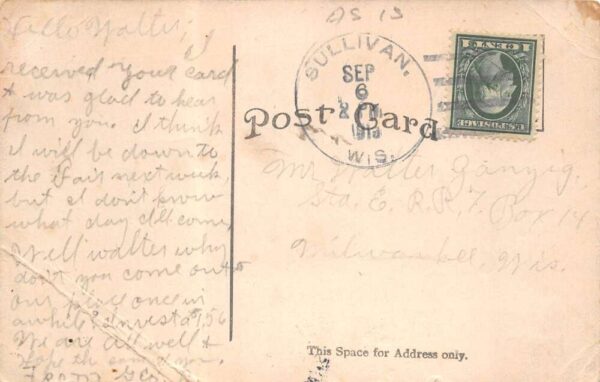 AS IS
Hello Walter,
I
received your card
& was glad to hear
from you. I think
I will be down to
the Fair next week
but I don't know
what day I'll come,
Well walter why
don't you come out to
our place once in
awhile
We are all well &
hope the same of you.
From
SULLIVAN.
SEP
6
1913
WIS.
Post Card
Mr Walter
Sta. E. R.R. 7. Box 14
Milwaukee, Wis.
This Space for Address only.